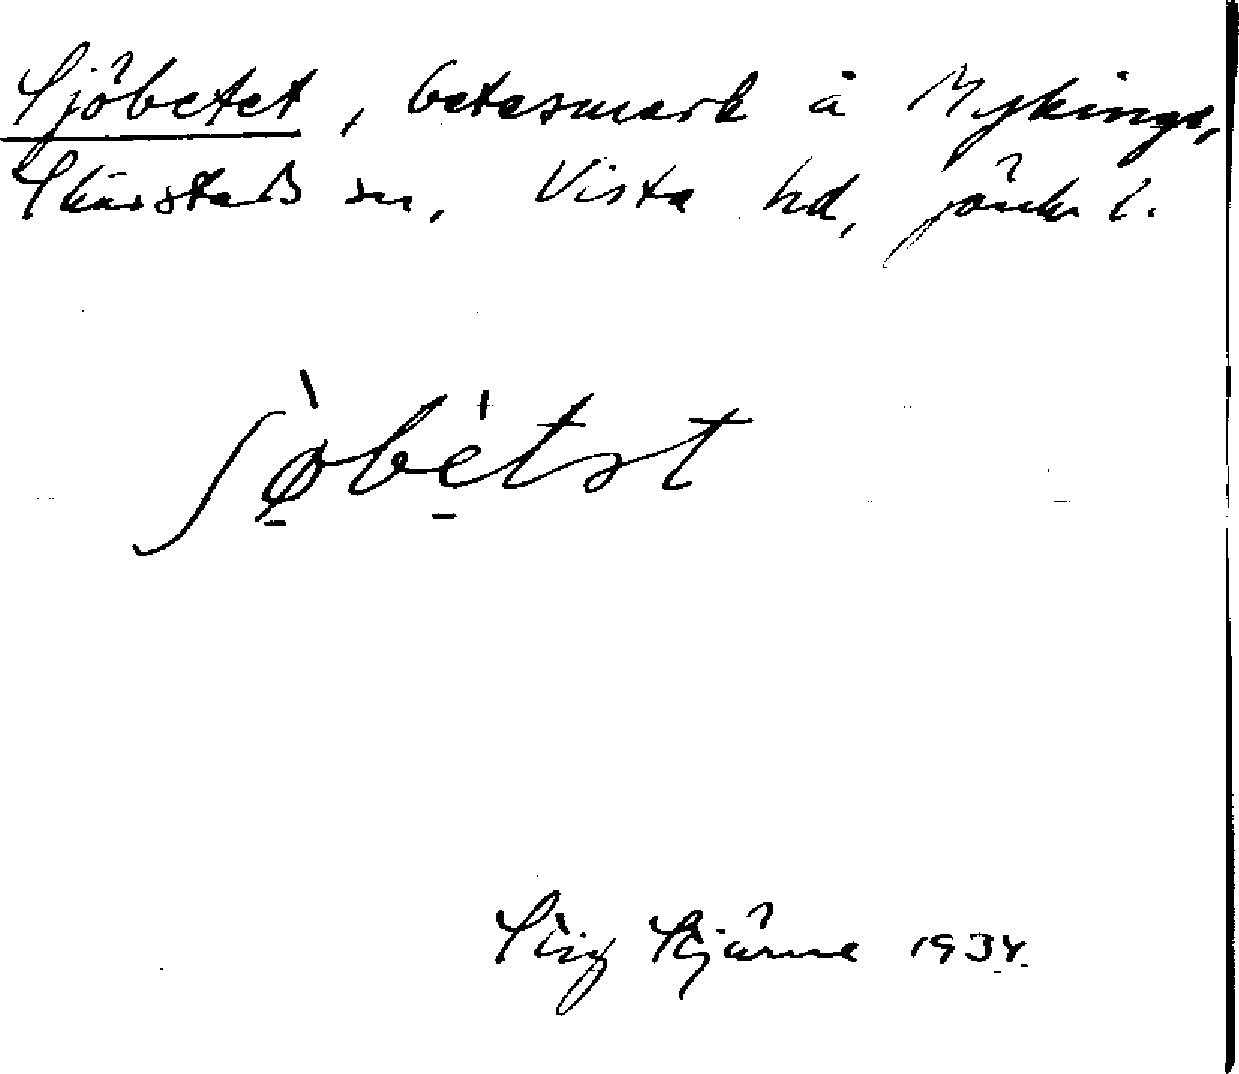 Sjöbetet, betesmark å Mykinge,
Skärstads sn, Vista hd, Jönk. l.
ʃø̀bétət
Stig Stjärne 1934.